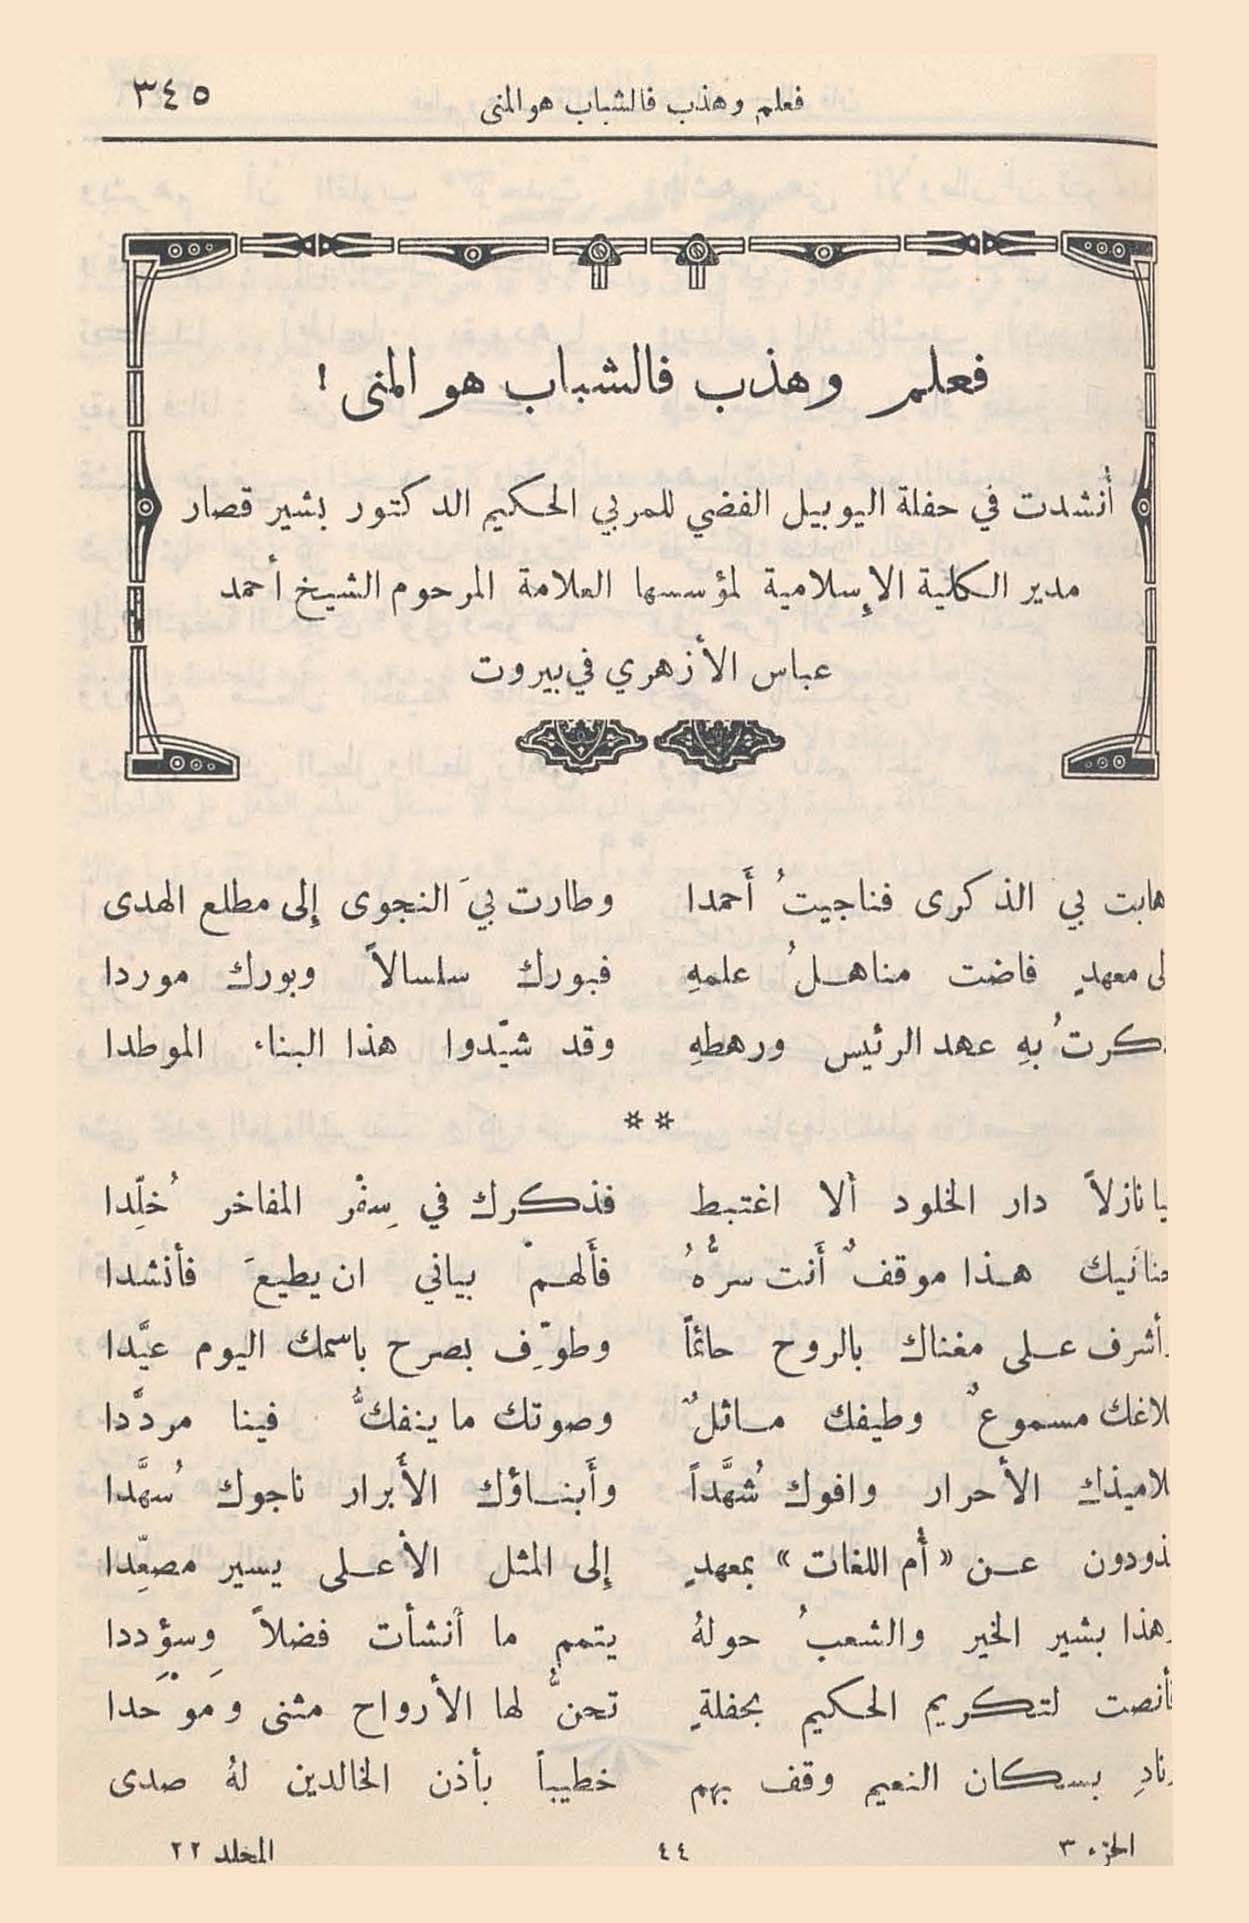 فعلم وهذب فالشباب هو المنى ٣٤٥
فعلم وهذب فالشباب هو المنى !
أنشدت في حفلة اليوبيل الفضي للمربي الحكيم الدكتور بشير قصار
مدير الكلية الإسلامية لمؤسسها العلامة المرحوم الشيخ أحمد
عباس الأزهري في بيروت
هابت بي الذكرى فناجيتُ أَحمدا وطارت بيَ النجوى إِلى مطلع الهدى
لى معهدٍ فاضت مناهلُ علمهِ فبورك سلسالاً وبورك موردا
كرتُ بهِ عهد الرئيس ورهطهِ وقد شيّدوا هذا البناء الموطدا
**
يا نازلاً دار الخلود ألا اغتبط فذكرك في سِفْر المفاخر خُلِّدا
حنانَيك هذا موقفٌ أَنت سرُّهُ فأَلهمْ بياني ان يطيعَ فأنشدا
أشرف على مغناك بالروح حائماً وطوِّف بصرح باسمك اليوم عيَّدا
لاغك مسموعٌ وطيفك ماثلٌ وصوتك ما ينفكُّ فينا مردَّدا
لاميذك الأحرار وافوك شُهَّداً وأَبناؤك الأَبرار ناجوك سُهَّدا
ذودون عن « أُم اللغات » بمعهدٍ إلى المثل الأعلى يسير مصعِّدا
هذا بشير الخير والشعبُ حولهُ يتمم ما أنشأت فضلاً وسؤددا
أنصت لتكريم الحكيم بحفلةٍ تحنُّ لها الأرواح مثنى وَمَوْحدا
نادِ بسكان النعيم وقف بهم خطيباً بأذن الخالدين لهُ صدى
الجزء ٣ ٤٤ المجلد ٢٢